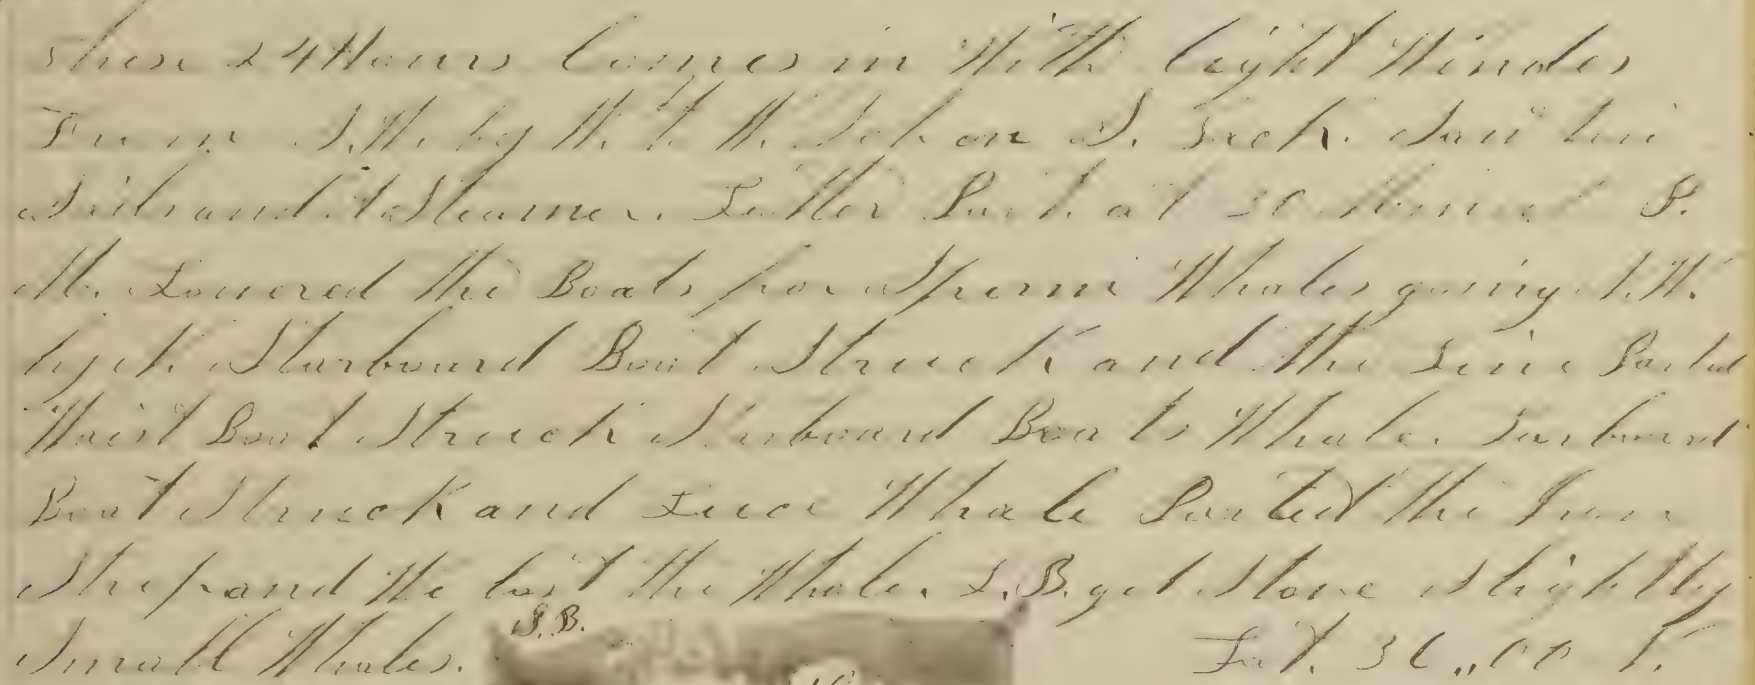 These 24 Hours Comes in With light Winds
From S.W. by W. to W. Ship on S. Tack. Saw two
Sails and 1 Steamer. Latter Part at 30 Minuts P.
M. Lowered the Boats for Sperm Whales going S.W.
by W. Starboard Boat Struck and the Line Parted
Waist Boat Struck Starboard Boats Whale. Larboard
Boat Struck and Whale Parted the Iron
Strap and We lost the Whale. L.B. got Stove slightly
Small Whales. S.B. Lat. 36,,00